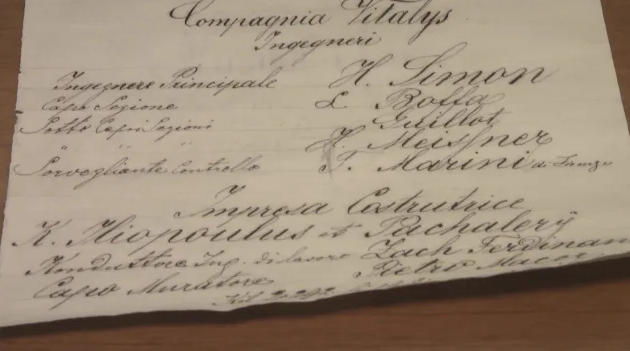 Compagnia Vitalys
Ingegneri
Ingegnere Principale H. Simon
Capo Sezione L. Boffa
Sotto Capi Sezioni Guillot
" " " H. Meissner
Sorvegliante Controllo F. Marini
Impresa Costrutrice
K. Iliopoulus et Pachalery
Konduttore Ing. di lavoro Zach Ferdinan
Capo Muratore Pietro